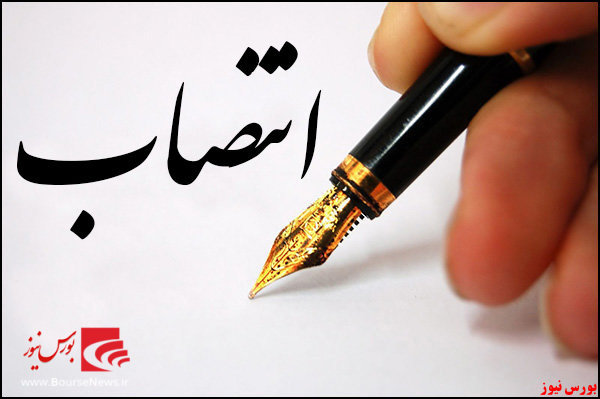 انتصاب
بورس نیوز
www.BourseNews.ir
بورس نیوز